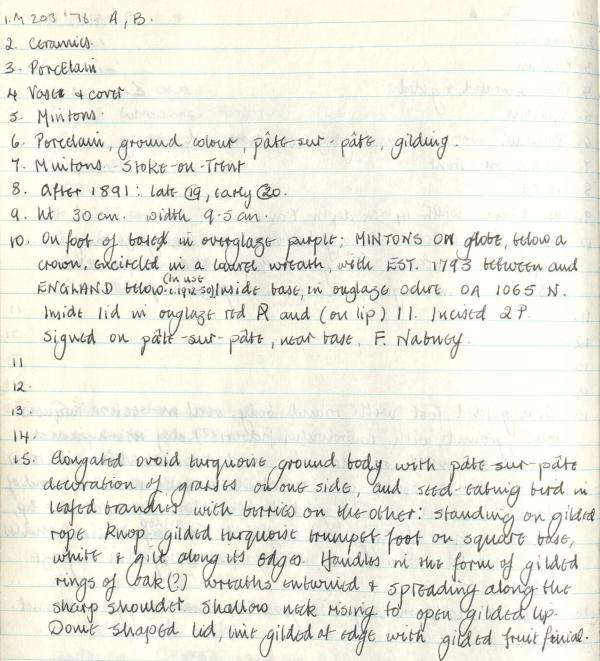 1. M 203 '76 A, B.
2. Ceramics.
3. Porcelain
4 Vase & cover
5. Mintons.
6. Porcelain, ground colour, pâte-sur-pâte, gilding.
7. Mintons. Stoke-on-Trent
8. After 1891: late 19, early 20.
9. ht 30 cm. width 9.5 cm.
10. On foot of base in overglaze purple; MINTONS ON globe, below a
crown, encircled in a laurel wreath, with EST. 1793 between and
ENGLAND below. (In use c.1912-50) Inside base, in onglaze ochre OA 1065 N.
Inside lid in onglaze red R and (on lip) 11. Incised 2P.
Signed on pâte-sur-pâte, near base, F. Nabney.
11
12.
13.
14.
15. Elongated ovoid turquoise ground body with pâte-sur-pâte
decoration of grasses on one side, and seed-eating bird in
leafed branches with berries on the other: standing on gilded
rope knop, gilded turquoise trumpet foot on square base,
white & gild along its edges. Handles in the form of gilded
rings of oak(?) wreaths entwined & spreading along the
sharp shoulder. Shallow neck rising to open gilded lip.
Dome-shaped lid, gilded at edge with gilded fruit finial.